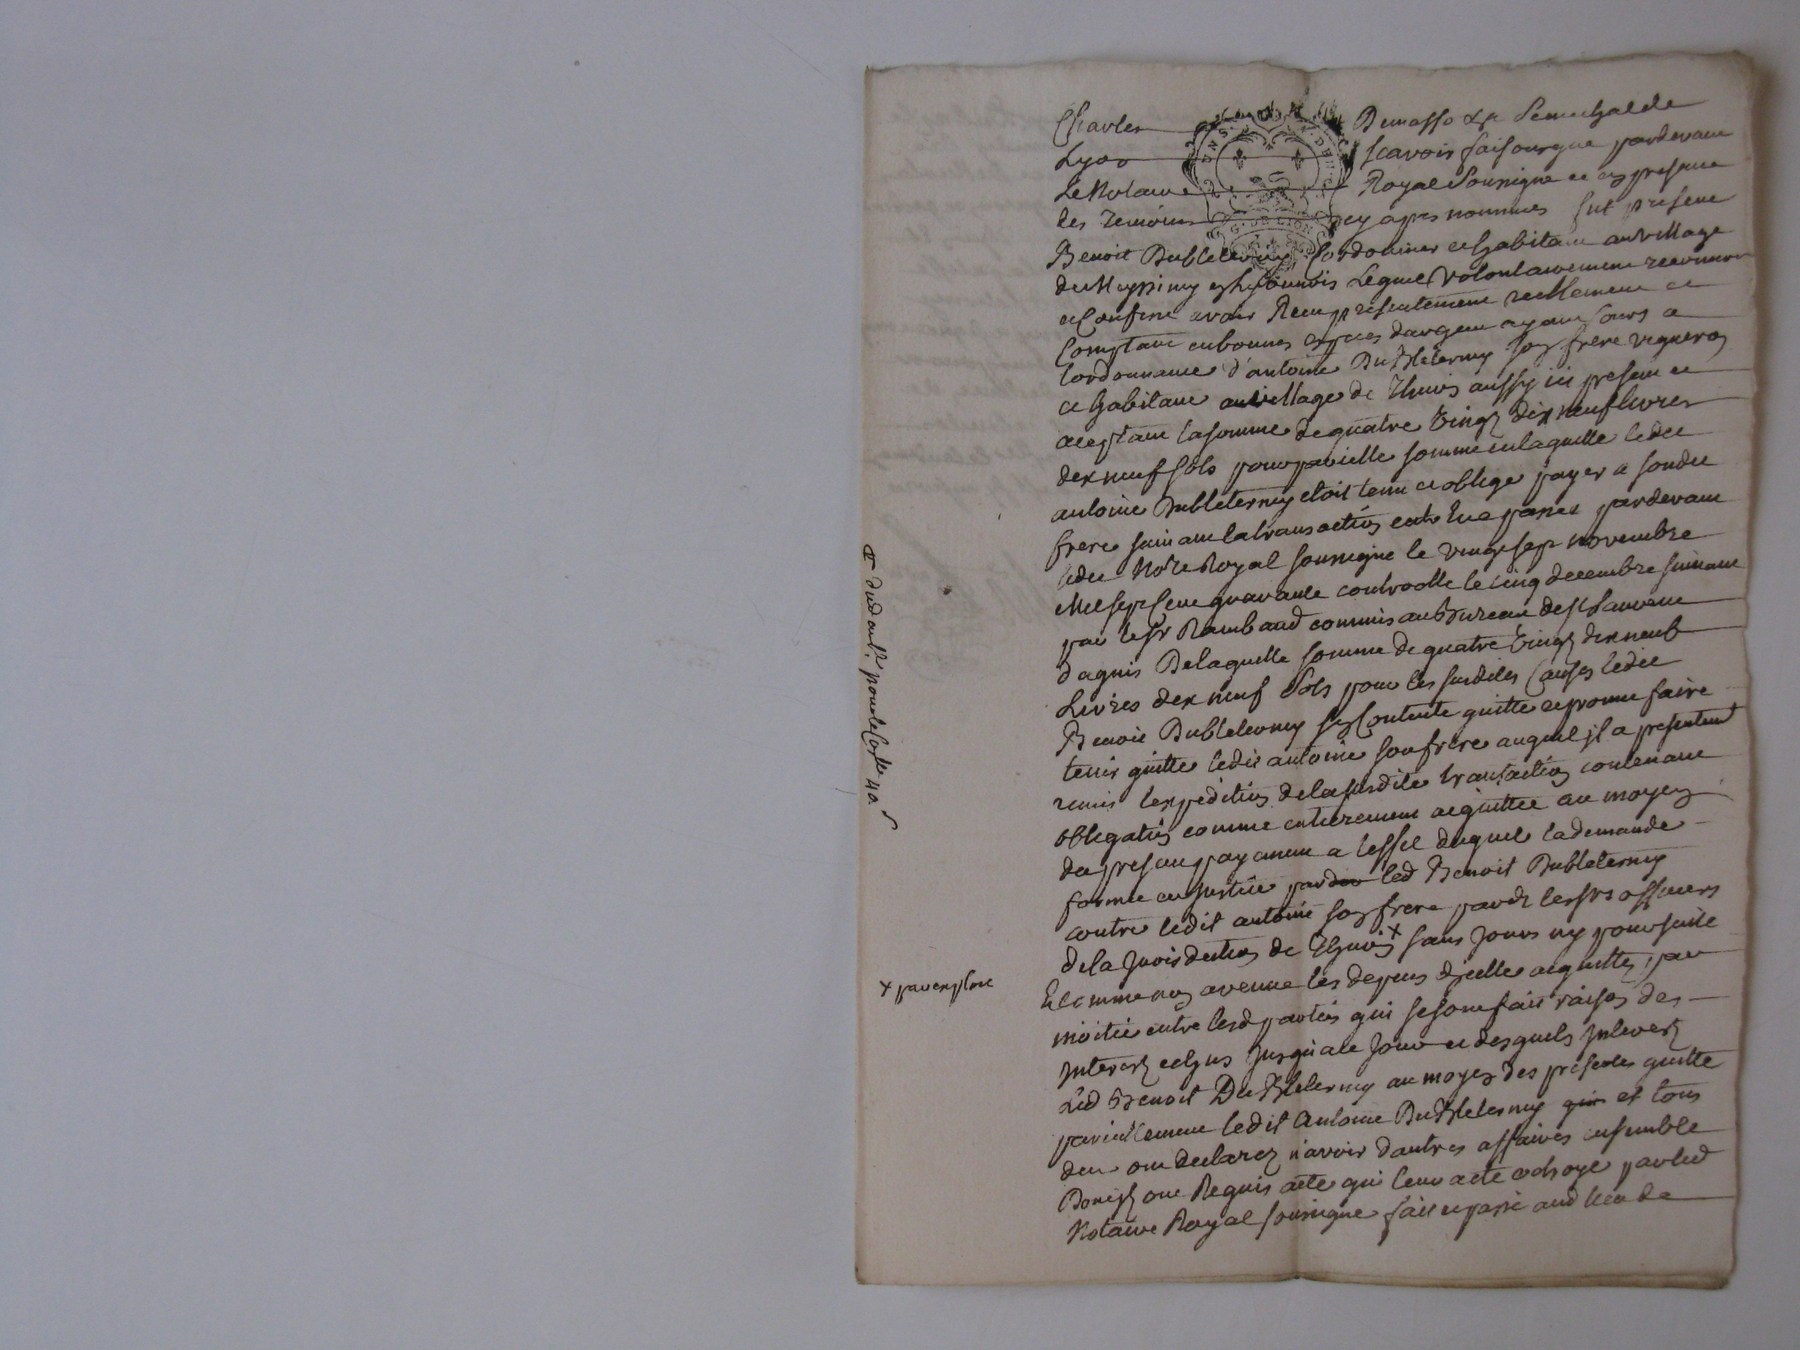 Charles Demasso &c Senechal de
Lyon scavoir faisons que pardevant
Le Notaire Royal Soussigné et en presence
des Temoins cy apres nommes fut present
Benoit Dubleterny Cordonnier et habitant au village
de Messimy en Lyonnois Lequel volontairement
et Confesse avoir Receu presentement reellement et
Comptant en bonnes especes dargent ayant Cours a
lordonnance d'antoine Dubleterny son frere vigneron
et habitant au village de Thurin aussy ici present et
aceptant la somme de quatre vingt dix neuf livres
dix neuf sols pour pareille somme en laquelle ledit
antoine Dubleterny etoit tenu et obligé payer a sondit
frere suivant la transaction entre Eux passee pardevant
ledit No.re Royal soussigné le vingt sept novembre
Mil sept Cent quarante controollé le cinq decembre suivant
par le Sr Rambaud commis au Bureau de St Laurent
dagnis De laquelle somme de quatre vingt dix neuf
Livres dix neuf Sols pour les susdites Causes ledit
Benoit Dubleterny sen Contente quitte et promet faire
tenir quitte ledit antoine son frere auquel jl a presentemt
remis lexpedition de la susdite transaction contenant
obligation comme entierement acquittée au moyen
du present payement a leffet duquel la demande
formée en justice par led Benoit Dubleterny
contre ledit antoine son frere pardt les srs officiers
de la Jurisdiction de Thurin x sans Jours ny poursuite
Et comme non avenue les depens djcelle acquittes par
moitié entre lesd parties qui se sont fait raison des
Jnterets echus jusqu'a ce jour et desquels Jnterets
Led Benoit Dubleterny au moyen des presentes quitte
pareillement ledit Antoine Dubleterny et tous
deux ont declarez n'avoir dautres affaires ensemble
Dont ils ont Requis acte qui leur a eté octroyé par led
Notaire Royal soussigné fait et passé aud lieu de
x par exploit